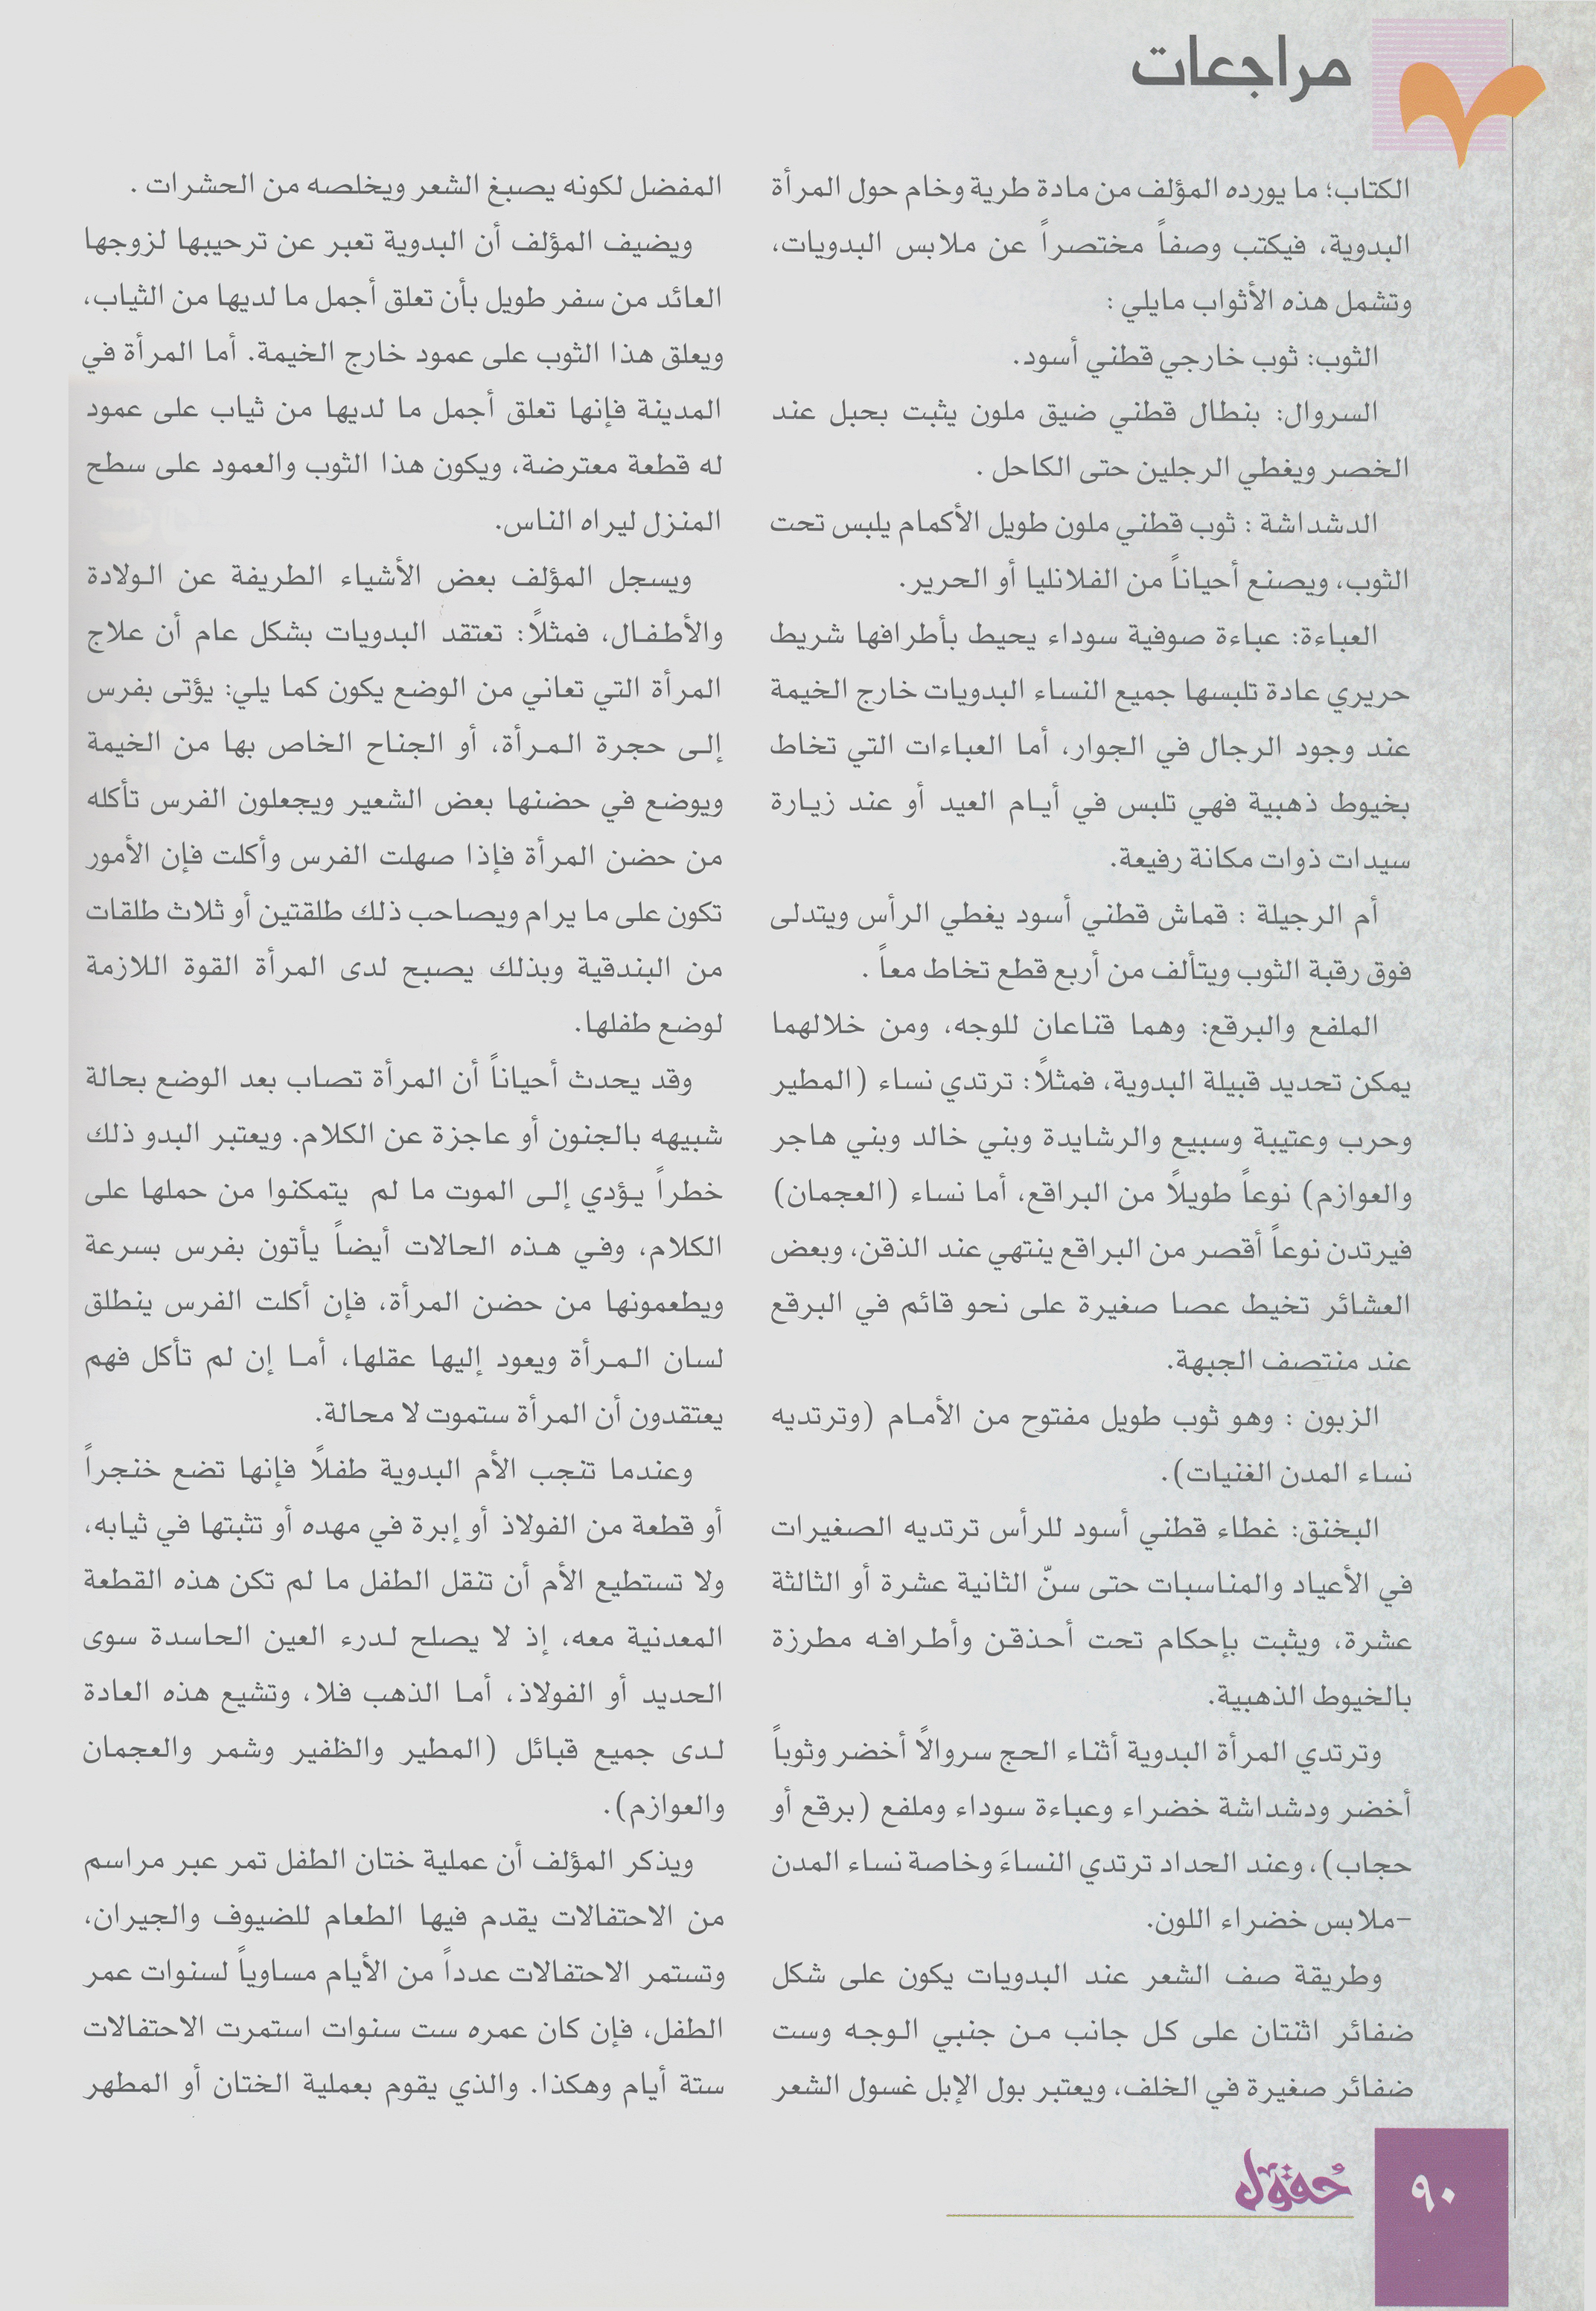 مراجعات
الكتاب؛ ما يورده المؤلف من مادة طرية وخام حول المرأة
البدوية، فيكتب وصفاً مختصراً عن ملابس البدويات،
وتشمل هذه الأثواب مايلي :
الثوب: ثوب خارجي قطني أسود.
السروال: بنطال قطني ضيق ملون يثبت بحبل عند
الخصر ويغطي الرجلين حتى الكاحل .
الدشداشة : ثوب قطني ملون طويل الأكمام يلبس تحت
الثوب، ويصنع أحياناً من الفلانليا أو الحرير.
العباءة: عباءة صوفية سوداء يحيط بأطرافها شريط
حريري عادة تلبسها جميع النساء البدويات خارج الخيمة
عند وجود الرجال في الجوار، أما العباءات التي تخاط
بخيوط ذهبية فهي تلبس في أيام العيد أو عند زيارة
سيدات ذوات مكانة رفيعة.
أم الرجيلة : قماش قطني أسود يغطي الرأس ويتدلى
فوق رقبة الثوب ويتألف من أربع قطع تخاط معاً .
الملفع والبرقع: وهما قناعان للوجه، ومن خلالهما
يمكن تحديد قبيلة البدوية، فمثلاً: ترتدي نساء (المطير
وحرب وعتيبة وسبيع والرشايدة وبني خالد وبني هاجر
والعوازم) نوعاً طويلاً من البراقع، أما نساء (العجمان)
فيرتدن نوعاً أقصر من البراقع ينتهي عند الذقن، وبعض
العشائر تخيط عصا صغيرة على نحو قائم في البرقع
عند منتصف الجبهة.
الزبون : وهو ثوب طويل مفتوح من الأمام (وترتديه
نساء المدن الغنيات).
البخنق: غطاء قطني أسود للرأس ترتديه الصغيرات
في الأعياد والمناسبات حتى سنّ الثانية عشرة أو الثالثة
عشرة، ويثبت بإحكام تحت أحذقن وأطرافه مطرزة
بالخيوط الذهبية.
وترتدي المرأة البدوية أثناء الحج سروالاً أخضر وثوباً
أخضر ودشداشة خضراء وعباءة سوداء وملفع (برقع أو
حجاب)، وعند الحداد ترتدي النساءَ وخاصة نساء المدن
-ملابس خضراء اللون.
وطريقة صف الشعر عند البدويات يكون على شكل
ضفائر اثنتان على كل جانب من جنبي الوجه وست
ضفائر صغيرة في الخلف، ويعتبر بول الإبل غسول الشعر
المفضل لكونه يصبغ الشعر ويخلصه من الحشرات .
ويضيف المؤلف أن البدوية تعبر عن ترحيبها لزوجها
العائد من سفر طويل بأن تعلق أجمل ما لديها من الثياب،
ويعلق هذا الثوب على عمود خارج الخيمة. أما المرأة في
المدينة فإنها تعلق أجمل ما لديها من ثياب على عمود
له قطعة معترضة، ويكون هذا الثوب والعمود على سطح
المنزل ليراه الناس.
ويسجل المؤلف بعض الأشياء الطريفة عن الولادة
والأطفال، فمثلاً: تعتقد البدويات بشكل عام أن علاج
المرأة التي تعاني من الوضع يكون كما يلي: يؤتى بفرس
إلى حجرة المرأة، أو الجناح الخاص بها من الخيمة
ويوضع في حضنها بعض الشعير ويجعلون الفرس تأكله
من حضن المرأة فإذا صهلت الفرس وأكلت فإن الأمور
تكون على ما يرام ويصاحب ذلك طلقتين أو ثلاث طلقات
من البندقية وبذلك يصبح لدى المرأة القوة اللازمة
لوضع طفلها.
وقد يحدث أحياناً أن المرأة تصاب بعد الوضع بحالة
شبيهه بالجنون أو عاجزة عن الكلام. ويعتبر البدو ذلك
خطراً يؤدي إلى الموت ما لم يتمكنوا من حملها على
الكلام، وفي هذه الحالات أيضاً يأتون بفرس بسرعة
ويطعمونها من حضن المرأة، فإن أكلت الفرس ينطلق
لسان المرأة ويعود إليها عقلها، أما إن لم تأكل فهم
يعتقدون أن المرأة ستموت لا محالة.
وعندما تنجب الأم البدوية طفلاً فإنها تضع خنجراً
أو قطعة من الفولاذ أو إبرة في مهده أو تثبتها في ثيابه،
ولا تستطيع الأم أن تنقل الطفل ما لم تكن هذه القطعة
المعدنية معه، إذ لا يصلح لدرء العين الحاسدة سوى
الحديد أو الفولاذ، أما الذهب فلا، وتشيع هذه العادة
لدى جميع قبائل (المطير والظفير وشمر والعجمان
والعوازم).
ويذكر المؤلف أن عملية ختان الطفل تمر عبر مراسم
من الاحتفالات يقدم فيها الطعام للضيوف والجيران،
وتستمر الاحتفالات عدداً من الأيام مساوياً لسنوات عمر
الطفل، فإن كان عمره ست سنوات استمرت الاحتفالات
ستة أيام وهكذا. والذي يقوم بعملية الختان أو المطهر
حُقول
٩٠